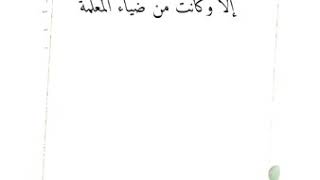 إلا وكانت من ضياء المعلمة